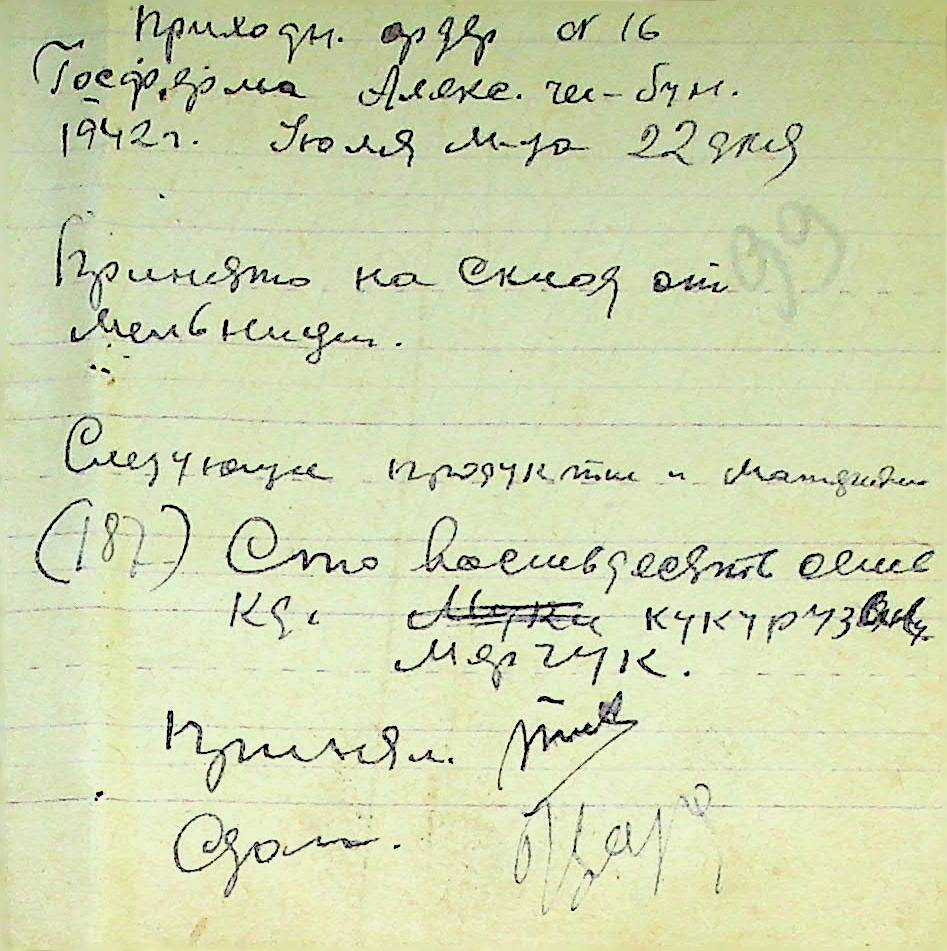 Приходн. ордер № 16
Госферма Алекс. чи-бун.
1942 г. Июля м-ца 22 дня
99
Принято на склад от
мельници.
Следующи продукти и
(187) Сто восемьдесять семь
кг. Муки кукурузяну
Мерчук.
Принял.
Сдал.